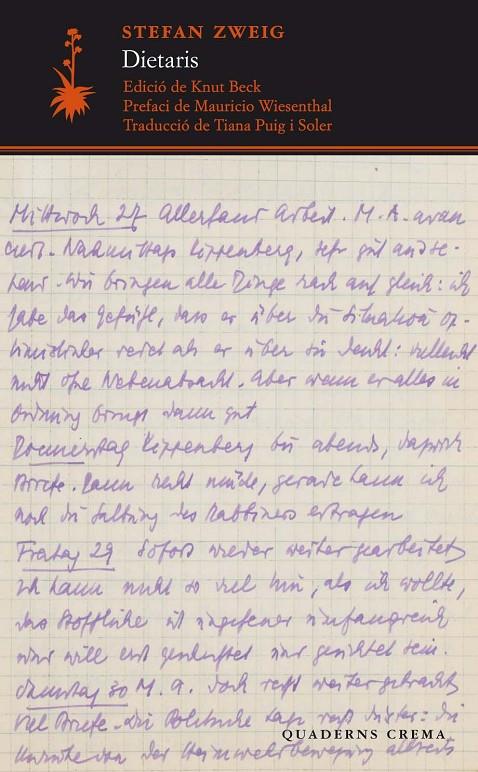 STEFAN ZWEIG
Dietaris
Edició de Knut Beck
Prefaci de Mauricio Wiesenthal
Traducció de Tiana Puig i Soler
Mittwoch 27 Allerhand Arbeit. M. A. avan
ciert. Nachmittags Kippenberg, sehr gut ausse-
hend. Wir bringen alle Dinge rasch auf gleich: ich
habe das Gefühl, dass er über die Situation op-
timistischer redet als er über sie denkt: vielleicht
nicht ohne Nebenabsicht. Aber wenn er alles in
Ordnung bringt dann gut
Donnerstag Kippenberg bis abends, dazwisch
Briefe. Dann recht müde, gerade kann ich
noch die des Rabbiners ertragen
Freitag 29 Sofort wieder weiter gearbeitet
ich kann nicht so viel thun, als ich wollte,
das Stoffliche ist ungeheuer umfangreich
und will erst gesichtet sein.
Samstag 30 M. A. doch recht weitergebracht
Viel Briefe. Die Politische Lage recht düster: die
der Heimwehrbewegung
QUADERNS CREMA